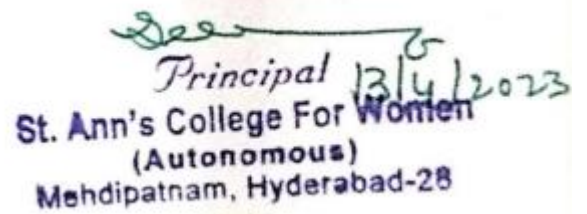 Principal 13/4/2023
St. Ann's College For Women
(Autonomous)
Mehdipatnam, Hyderabad-28